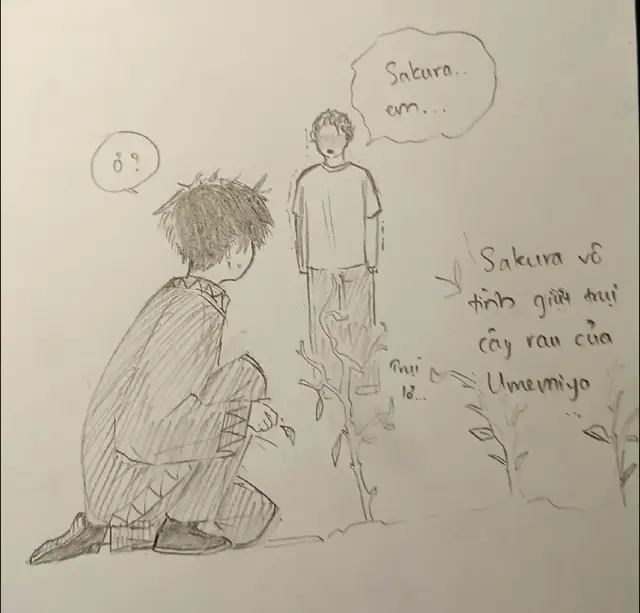 Sakura..
em...
ơ?
Sakura vô
tình giựt trụi
cây rau của
Umemiya
Trụi
lơ...